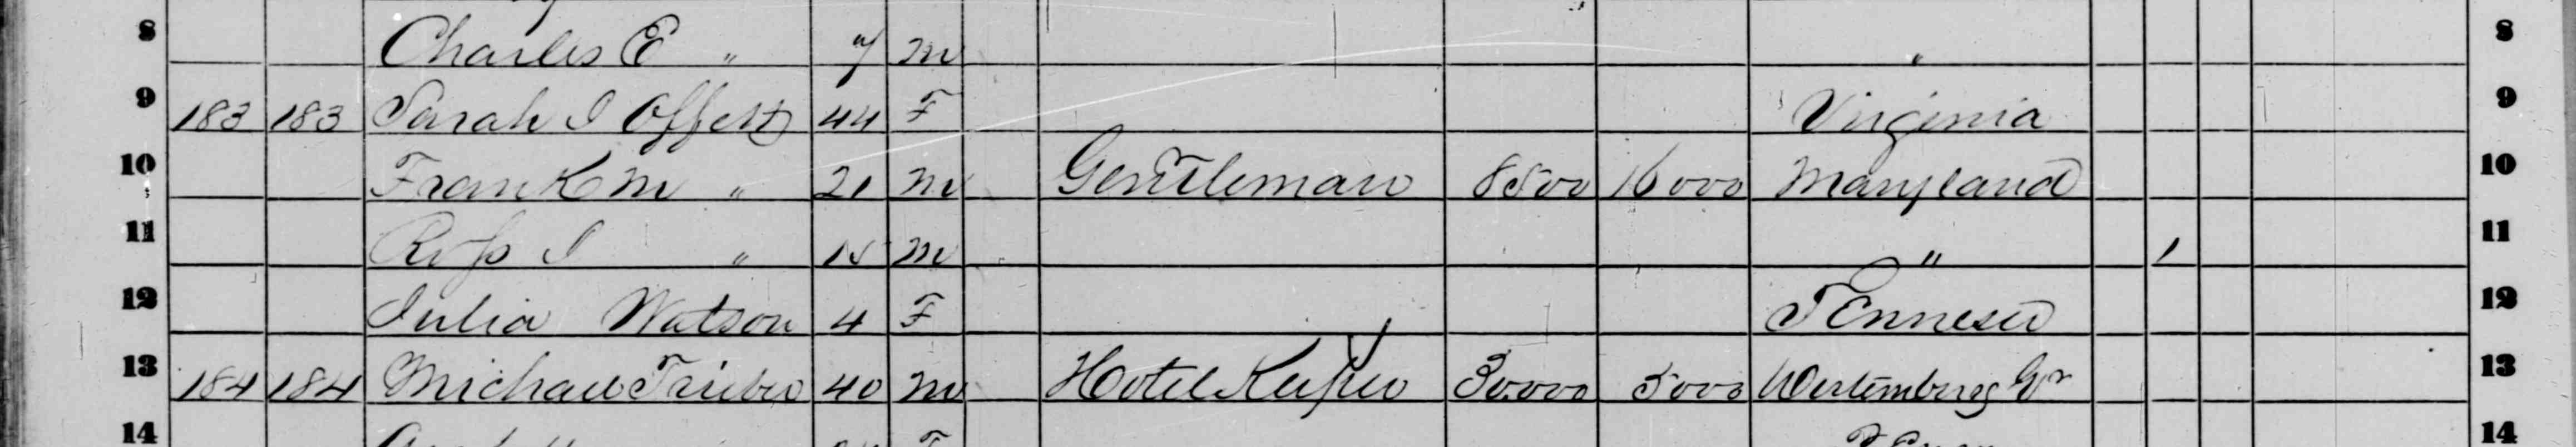 8 Charles E " 7 m " 8
9 183 183 Sarah I Offett 44 F Virginia 9
10 Frank m " 21 m Gentleman 8500 16000 Maryland 10
11 Ross I " 15 m " 1 11
12 Julia Watson 4 F Tennesee 12
13 184 184 Michael 40 m Hotel Keeper 30,000 5000 Wertemburg Gr 13
14 F 14